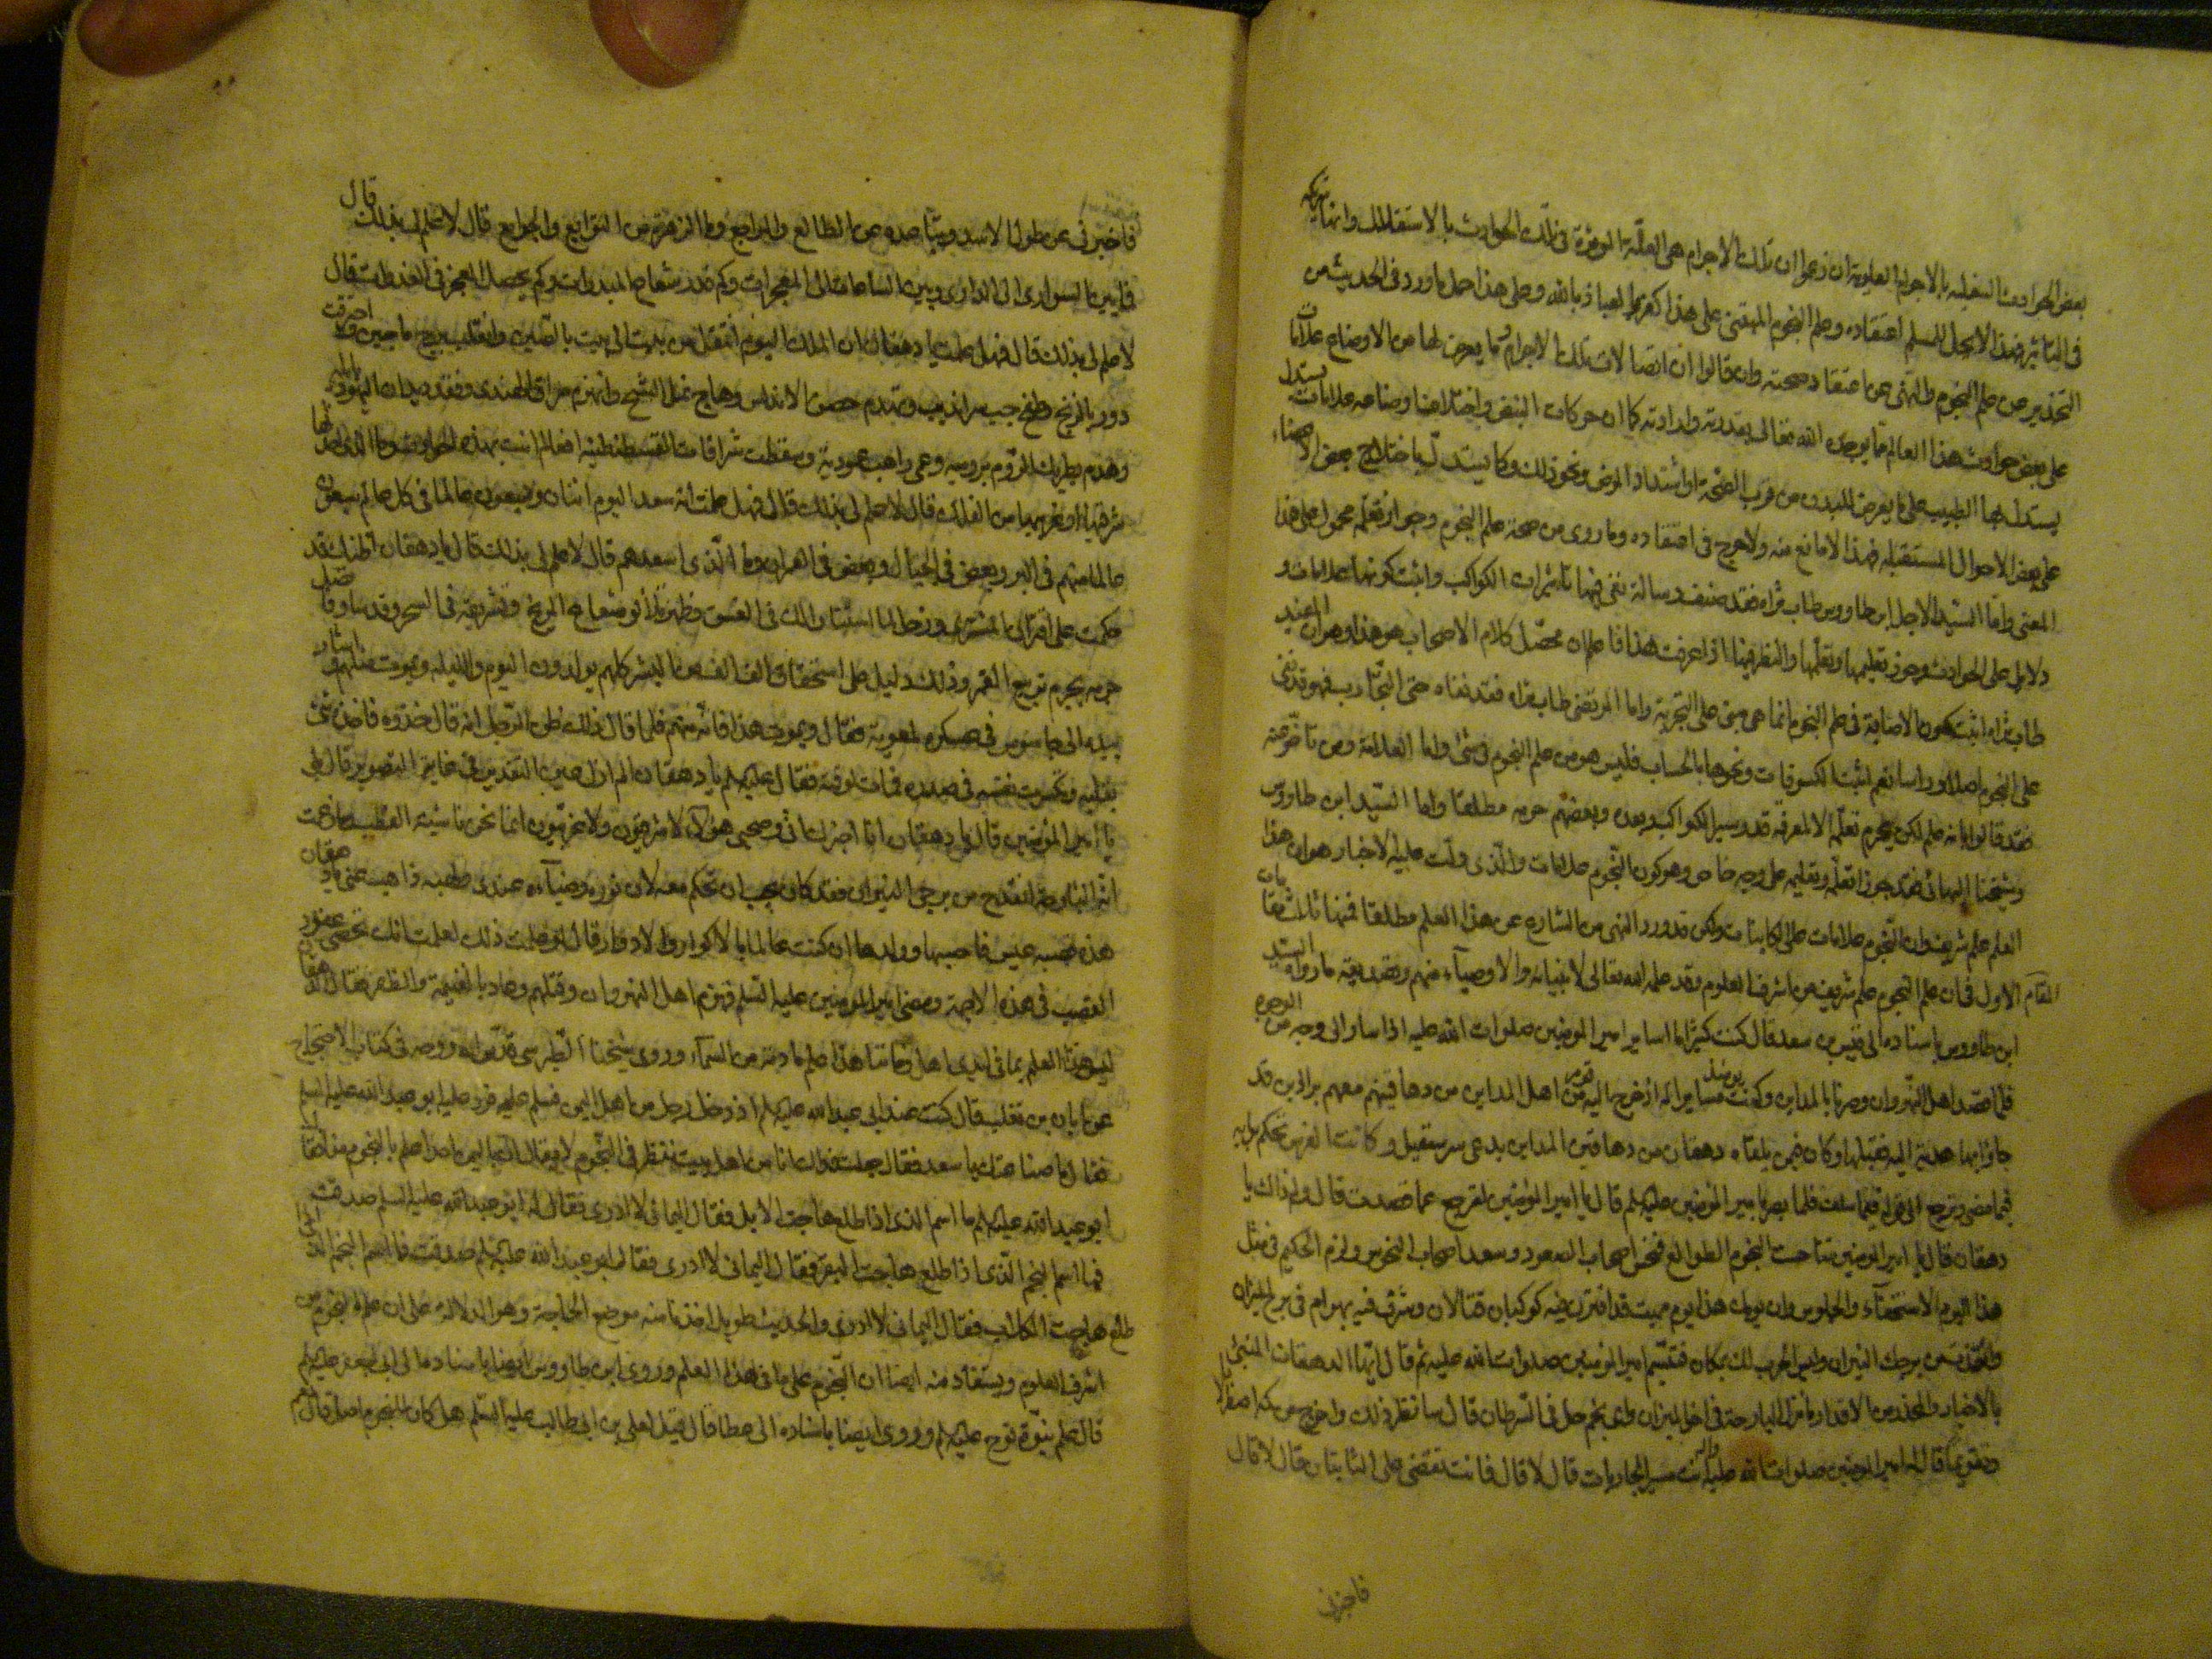 بعض الحوادث السفلية بالاجرام العلوية ان زعموا ان تلك الاجرام هي العلة المؤثرة في تلك الحوادث بالاستقلال وانها شريكة
في التاثير فهذا لا يحل للمسلم اعتقاده وعلم النجوم المبتني على هذا كفر والعياذ بالله وعلى هذا حمل ما ورد في الحديث من
التحذير عن علم النجوم والنهي عن اعتقاد صحته وان قالوا ان اتصالات تلك الاجرام وما يعرض لها من الاوضاع علامات
على بعض حوادث هذا العالم مما يوجده الله تعالى بقدرته وارادته كما ان حركات النبض واختلاف اوضاعه علامات يستدل
يستدل بها الطبيب على ما يعرض للبدن من قرب الصحة او اشتداد المرض ونحو ذلك وكما يستدل باختلاج بعض الاعضاء
على بعض الاحوال المستقبلة فهذا لا مانع منه ولا حرج في اعتقاده وما روي من صحة علم النجوم وجواز تعلمه محمول على هذا
المعنى واما السيد الاجل ابن طاووس طاب ثراه فقد صنف رسالة نفى فيها تاثيرات الكواكب واثبت كونها علامات و
دلايل على الحوادث وجوز تعليمها وتعلمها والنظر فيها اذا عرفت هذا فاعلم ان محصل كلام الاصحاب هو هذا وهو ان المفيد
طاب ثراه اثبت كون الاصابة في علم النجوم انما هي مبني على التجربة واما المرتضى طاب ثراه فقد نفاه حتى التجارب فهو قد نفى
على النجوم اصلا وراسا نعم اثبت الكسوفات ونحوها بالحساب فليس هو من علم النجوم في شئ واما العلامة ومن تاخر عنه
فقد قالوا بانه علم لكن يحرم تعلمه الا لمعرفة قدر سير الكواكب وبعده وبعضهم حرمه مطلقا واما السيد ابن طاووس
وشيخنا البهائي فقد جوزا تعلمه وتعليمه على وجه خاص وهو كون النجوم علامات والذي دلت عليه الاخبار هو ان هذا
العلم علم شريف وان النجوم علامات على الكاينات ولكن قد ورد النهي من الشارع عن هذا العلم مطلقا فهنا ثلث مقامات
المقام الاول في ان علم النجوم علم شريف من اشرف العلوم وقد علمه الله تعالى لانبيائه والاوصياء منهم وتصديقه ما رواه السيد
ابن طاووس باسناده الى قيس بن سعد قال كنت كثيرا ما اساير امير المومنين صلوات الله عليه اذا سار الى وجه من الوجوه
فلما قصد اهل النهروان وصرنا بالمداين وكنت يومئذ مسايرا له اذ خرج اليه قوم من اهل المداين من دهاقينهم معهم براذين قد
جاؤا بها هدية اليه فقبلها وكان فيمن تلقاه دهقان من دهاقين المداين يدعى سرسقيل وكانت الفرس تحكم برايه
فيما مضى وترجع الى قوله فيما سلف فلما بصر بامير المؤمنين عليه السلم قال يا امير المؤمنين لترجع عما قصدت قال ولم ذاك يا
دهقان قال يا امير المومنين تناحست النجوم الطوالع فنحس اصحاب السعود وسعد اصحاب النحوس ولزم الحكيم في مثل
هذا اليوم الاستخفاء والجلوس وان يومك هذا يوم مميت قد اقترن فيه كوكبان قتالان وشرف فيه بهرام في برج الميزان
واتقدت من برجك النيران وليس الحرب لك بمكان فتبسم امير المؤمنين صلوات الله عليه ثم قال ايها الدهقان المنبئ
بالاخبار والمحذر من الاقدار ما نزل البارحة في اخر الميزان واي نجم حل في السرطان قال سانظر ذلك واخرج من كمه اصطرلابا
وتقويما قال له امير المومنين صلوات الله عليه وآله انت مسير الجاريات قال لا قال فانت تقضي على الثابتات قال لا قال
فاخبرني
فاخبرني عن طول الاسد وتباعده عن المطالع والمراجع وما الزهرة من التوابع والجوامع قال لا علم لي بذلك قال
فما بين السواري الى الدراري وبين الساعات الى المعجرات وكم قدر شعاع المبدرات وكم تحصل الفجر في الغدوات قال
لا علم لي بذلك قال فهل علمت يا دهقان ان الملك اليوم انتقل من بيت الى بيت بالصين وانقلب برج ماجين واحترقت
دور بالزنج وطفح جب سرانديب وتهدم حصن الاندلس وهاج نمل الشيح وانهزم مراق الهندي وفقد ديان اليهود بايلة
وهدم بطريك الروم برومية وعمى راهب عمورية وسقطت شرافات القسطنطنية افعالم انت بهذه الحوادث وما الذي احدثها
شرقيها او غربيها من الفلك قال لا علم لي بذلك قال فهل علمت انه سعد اليوم اثنان وسبعون عالما في كل عالم سبعون
عالما منهم في البر وبعض في الجبال وبعض في العمران وما الذي اسعدهم قال لا علم لي بذلك قال يا دهقان اظنك قد
حكمت على اقتران المشتري وزحل لما استنارا لك في الغسق وظهر تلألؤ شعاع المريخ وتشريقه في السحر وقد سار فاتصل
جرمه بجرم تربيع القمر وذلك دليل على استحقاق الف الف من البشر كلهم يولدون اليوم والليلة ويموت مثلهم واشار
بيده الى جاسوس في عسكره لمعوية فقال ويموت هذا فانه منهم فلما قال ذلك ظن الرجل انه قال خذوه فاخذه شئ
بقلبه وتكسرت نفسه في صدره فمات لوقته فقال عليه السلم يا دهقان الم ارك عين التقدير في غاية التصوير قال بلى
يا امير المؤمنين قال يا دهقان انا اخبرك اني وصحبي هؤلاء لا شرقيون ولا غربيون انما نحن ناشئة القطب وما زعمت
انه البارحة انقدح من برجي النيران فقد كان يجب ان تحكم معه لان نوره وضياءه عندي ولهبه ذاهب عني يا دهقان
هذه قضية عيص فاحسبها وولدها ان كنت عالما بالاكوار والادوار قال لو علمت ذلك لعلمت انك تحصي عقود
القصب في هذه الاجمة ومضى امير المومنين عليه السلم فهزم اهل النهروان وقتلهم وعاد بالغنيمة والظفر فقال الدهقان
ليس هذا العلم بما في ايدي اهل زماننا هذا علم مادته من السماء وروى شيخنا الطبرسي قدس الله روحه في كتاب الاحتجاج
عن ابان بن تغلب قال كنت عند ابي عبد الله عليه السلم اذ دخل رجل من اهل اليمن فسلم عليه فرد عليه ابو عبد الله عليه السلم
فقال ما صناعتك يا سعد فقال جعلت فداك انا من اهل بيت ننظر في النجوم لا يقال ان باليمن احدا اعلم بالنجوم منا فقال
ابو عبد الله عليه السلم ما اسم الذي اذا طلع هاجت الابل فقال اليماني لا ادري فقال له ابو عبد الله عليه السلم صدقت
فما اسم النجم الذي اذا طلع هاجت البقر فقال اليماني لا ادري فقال ابو عبد الله عليه السلم صدقت فما اسم النجم الذي اذا
طلع هاجت الكلاب فقال اليماني لا ادري والحديث طويل اخذنا منه موضع الحاجة وهو الدلالة على ان علم النجوم من
اشرف العلوم ويستفاد منه ايضا ان النجوم على ما في هذا العلم وروى ابن طاووس ايضا باسناده الى ابي جعفر عليه السلم
قال علم نبوة نوح عليه السلم وروى ايضا باسناده الى عطا قال قيل لعلي بن ابي طالب عليه السلم هل كان للنجوم اصل قال نعم